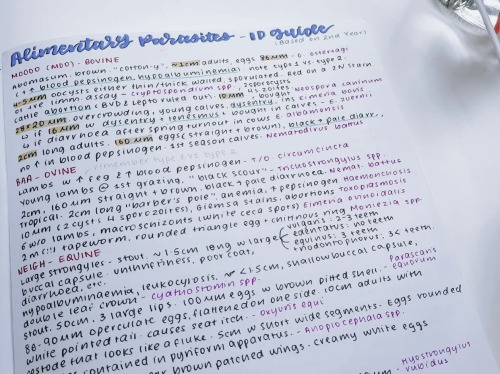 Alimentary Parasites - ID guide
(Based on 2nd Year)
MOOOO (MOO) - BOVINE
Abomasum. brown. "cotton-y". ~1cm adults, eggs 86μm - O. ostertagi
(↑↑ blood pepsinogen, hypoalbuminemia) note type 1 vs type 2.
4-5μm oocysts either thin/thick walled, sporulated. Red on a ZN stain
immno. assay - Cryptosporidium spp.
cattle abortion (BVD & Lepto ruled out). 10μm, Neospora caninum
28×20μm overcrowding, young calves, dysentery, ins Eimeria bovis
↳ if 16μm w dysentery + tenesmus + bought in calves - E. zuernii
↳ if diarrhoea after spring turnout in cows E. alabamensis
2cm long adults. 160μm eggs (straight + brown), black + pale diarr.,
no ↑ in blood pepsinogen. 1st season calves. Nematodirus battus
remember type 1 vs type 2
BAA - OVINE
Lambs w ↑ FEG & ↑ blood pepsinogen - T/O circumcincta
Young lambs @ 1st grazing. "black scour" - Trichostrongylus spp.
2cm, 160μm straight + brown. black + pale diarrhoea Nemat. battus
Tropical. 2cm long "barber's pole" anemia, ↑ pepsinogen Haemonchosis
10μm (2 cysts 4 sporozoites), Giemsa stains, abortions Toxoplasmosis
6 w/o lambs, macroschizonts (white ceca spots) Eimeria ovinoidalis
2m (!!) tapeworm, rounded triangle egg + chitinous ring Moniezia spp.
NEIGH - EQUINE
Large strongyles - stout. ~1.5cm long w large
buccal capsule. unthriftiness, poor coat,
diarrhoea, etc.
vulgaris: 2-3 teeth
edentatus: no teeth
equinus: 3 teeth
+ triodontophorus: 3< teeth.
hypoalbuminaemia, leukocytosis. <1.5cm, shallow buccal capsule,
double leaf crown - cyathostomin spp.
stout. 50cm. 3 large lips. 100μm eggs w brown pitted shell. - Parascaris equorum
88-90μm operculate eggs, flattened on one side. 10cm adults with
white pointed tail. causes seat itch. - oxyuris equi
cestode that looks like a fluke. 5cm w short wide segments. Eggs rounded
contained in pyriform apparatus. - Anoplocephala spp.
brown patched wings. creamy white eggs
Hyostrongylus rubidus